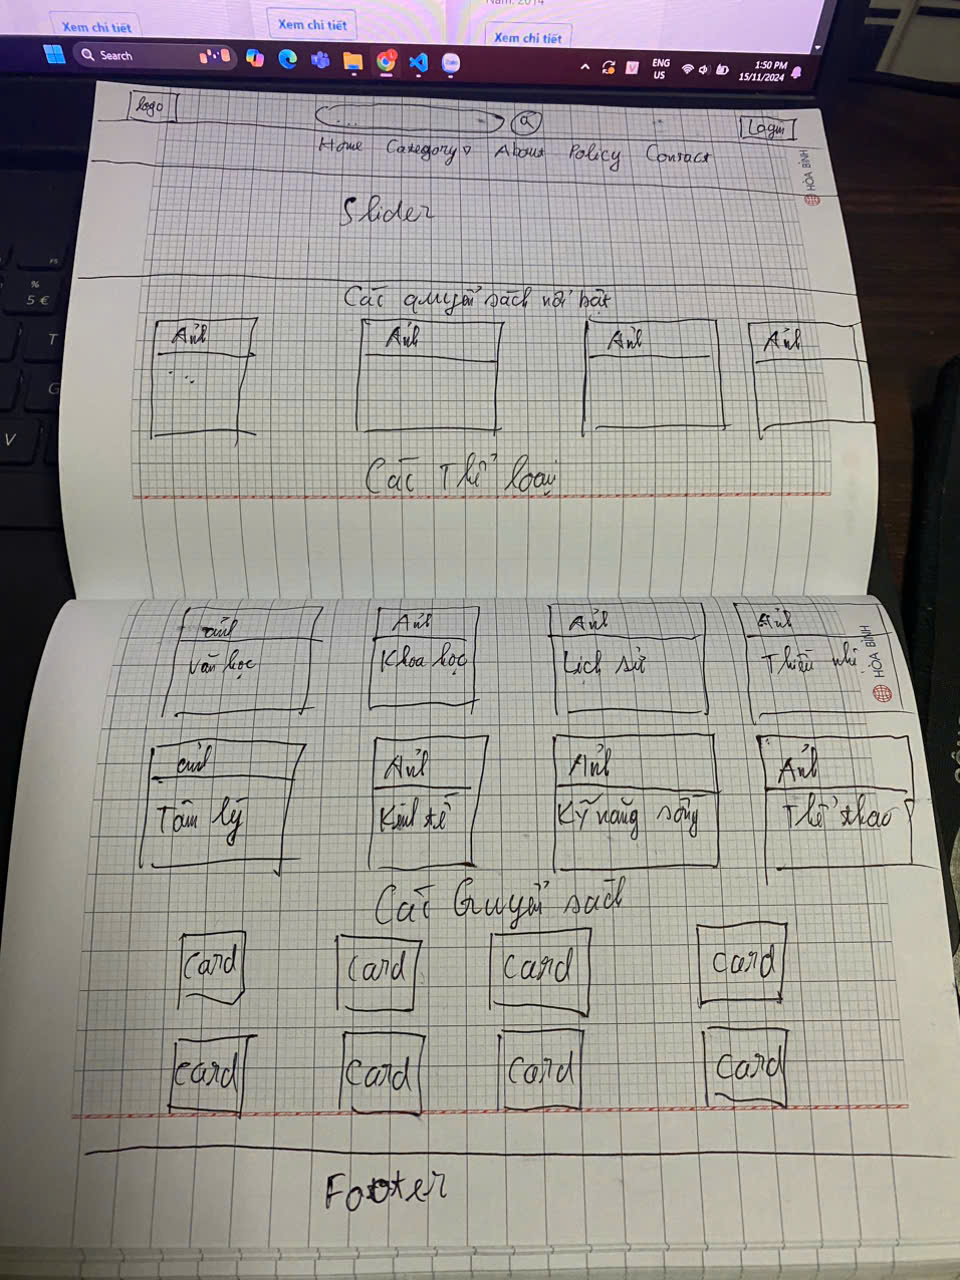 Năm: 2014
Xem chi tiết Xem chi tiết Xem chi tiết
Search
ENG
US
1:50 PM
15/11/2024
Logo
... Q Login
Home Category About Policy Contact
HÒA BÌNH
Slider
Các quyển sách nổi bật
Ảnh Ảnh Ảnh Ảnh
...
Các Thể loại
%
5 €
T
G
V
ảnh Ảnh Ảnh Ảnh
Văn học Khoa học Lịch sử Thiếu nhi
HÒA BÌNH
ảnh Ảnh Ảnh Ảnh
Tâm lý Kinh tế Kỹ năng sống Thể thao
Các Quyển sách
Card Card Card Card
Card Card Card Card
Footer